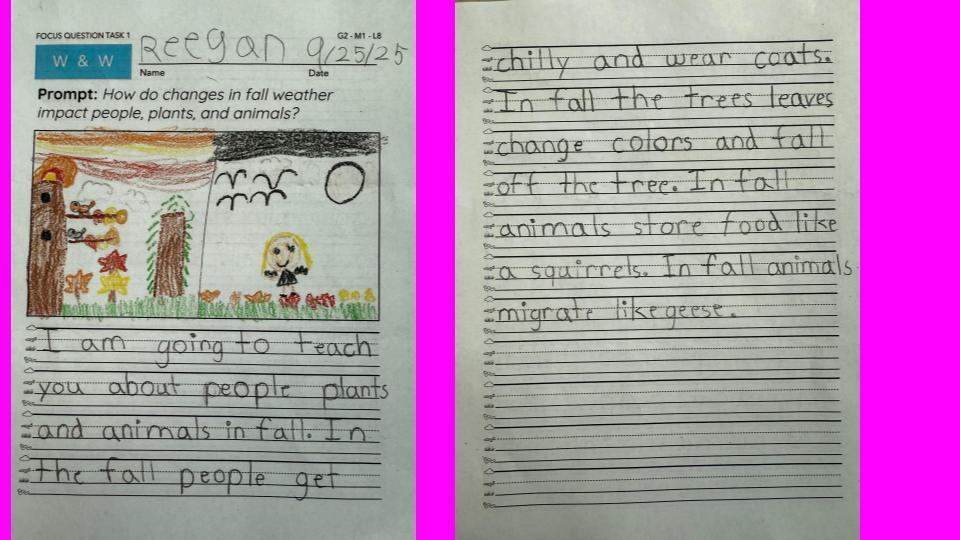 FOCUS QUESTION TASK 1
G2 - M1 - L8
W & W
Reegan 9/25/25
Name Date
Prompt: How do changes in fall weather
impact people, plants, and animals?
I am going to teach
you about people plants
and animals in fall. In
the fall people get
chilly and wear coats.
In fall the trees leaves
change colors and fall
off the tree. In fall
animals store food like
a squirrels. In fall animals
migrate like geese.